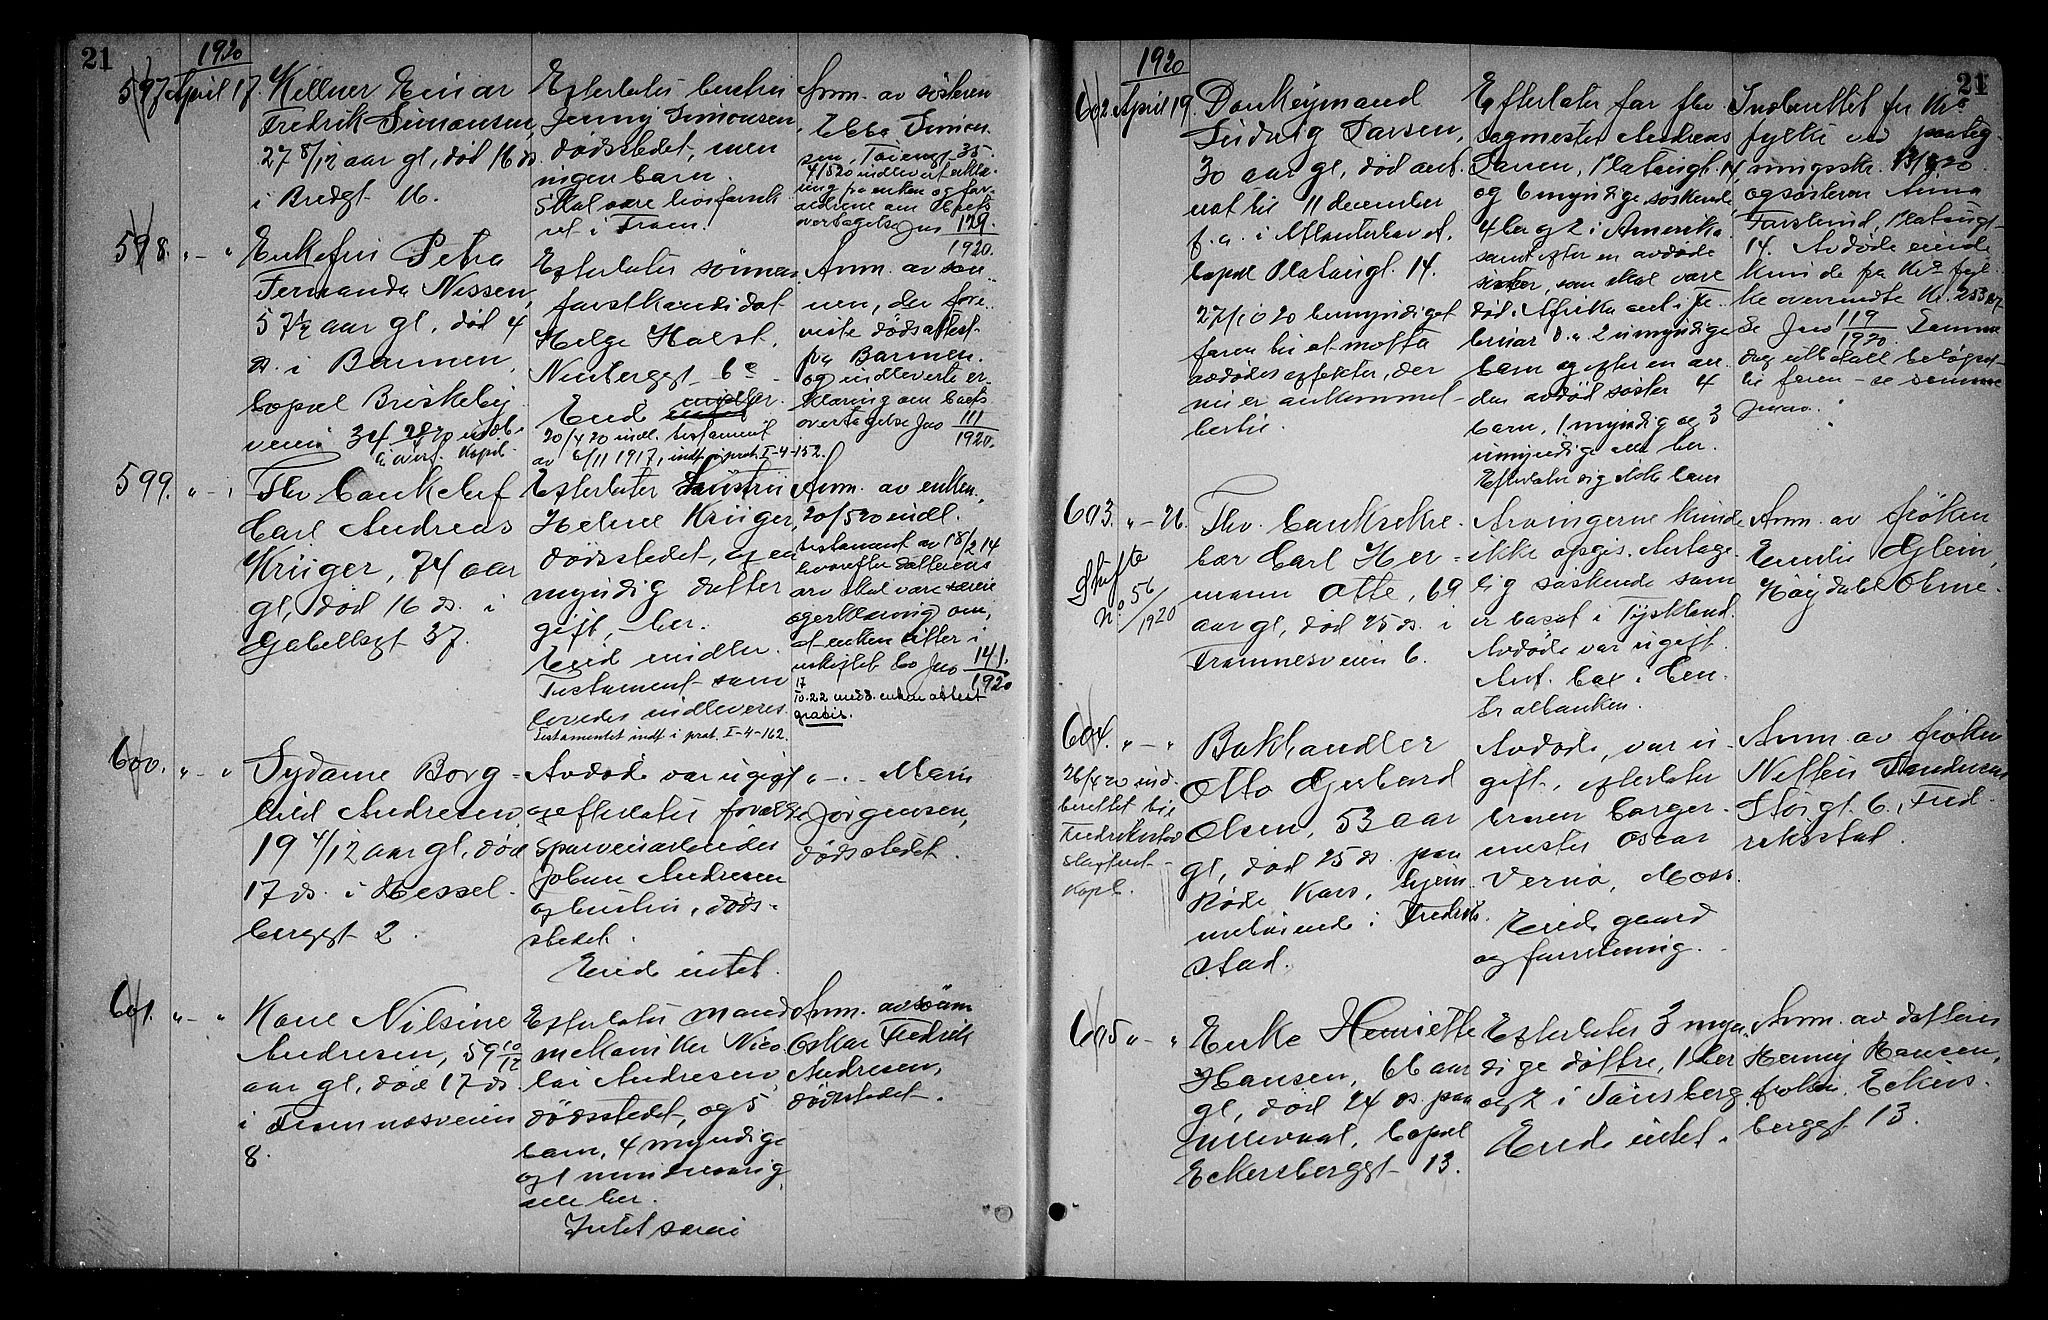 21
1920
597 April 17
Kellner Einar
Fredrik Simonsen,
27 8/12 aar gl, død 16 ds.
i Bredgt 16.
Efterlater hustru
Jenny Simonsen
dødsstedet, men
ingen barn.
Skal være livsforsik
ret i Fram.
Anm. av søsteren
Ebba Simon
sen, Tøiengt 35.
4/5 20 indlevert erklæ-
ring fra enken og for-
ældrene om boets
overtagelse Jno 129
1920.
598. " - "
Enkefru Petra
Fernanda Nissen,
57 1/2 aar gl, død 4
ds. i Barmen,
bopæl Briskeby-
veien 34
Efterlater sønnen
forstkandidat
Helge Holst.
Neuberggt 6c
Eied midler.
20/4 20 indl. testament
av 6/11 1917, indf i prot. I-4-152.
Anm. av søn-
nen, der fore
viste dødsattest
fra Barmen.
og indleverte er-
klæring om boets
overtagelse Jno 111
1920.
599. " - "
Fhv bankchef
Carl Andreas
Krüger, 74 aar
gl, død 16 ds. i
Gabelsgt 37.
Efterlater hustru
Helene Krüger,
dødsstedet, og en
myndig datter
gift, - her.
Eied midler.
Testament som
senere indleveres.
Testamentet indf i prot. I-4-162.
Anm. av enken,
20/5 20 indl.
testament av 18/2 14
hvorefter datterens
arv skal være særeie
og erklæring om,
at enken sitter i
uskiftet bo Jno 141.
1920
17
10.22 medd. enken attest
gratis.
600. " - "
Sydame Borg-
hild Andresen,
19 4/12 aar gl, død
17 ds. i Hessel-
berggt 2.
Avdøde var ugift
og efterlater forældre
sporveisarbeider
Johan Andresen
og hustru, døds-
stedet.
Eied intet.
" - . - Marie
Jørgensen,
dødsstedet.
601. " - "
Kone Nilsine
Andresen, 59 10/12
aar gl, død 17 ds.
i Fromnæsveien
8.
Efterlater mand
mekaniker Nico
lai Andresen,
dødsstedet, og 5
barn, 4 myndige
og 1 mindreaarig
alle her.
Intet særeie
Anm. av søn
Oskar Fredrik
Andresen,
dødsstedet.
21
1920
602. April 19.
Donkeymand
Ludvig Larsen,
30 aar gl, død ant.
nat til 11 december
f.a. i Atlanterhavet,
bopæl Platougt. 14.
27/10 20 bemyndiget
faren til at motta
avdødes effekter, der
nu er ankommet
hertil.
Efterlater far fhv.
sagmester Andreas
Larsen, Platougt. 14
og 6 myndige søskende,
4 her og 2 i Amerika,
samt efter en avdøde
søster, som skal være
død i Afrika ant. i fe
bruar d.a. 2 umyndige
barn og efter en an
den avdød søster 4
barn, 1 myndig og 3
umyndige alle her.
Efterlater sig ikke barn
Indberettet fra Kra
fylke ved paateg-
ningsskr. 13/4 20
og søsteren Anna
Forslund, Platougt-
14. Avdøde eiende
kun de fra Kra fyl-
ke oversendte Kr. 253.27
Se Jno 119
1920. Samme
dag utbetalt beløpet
til faren - se samme
jurno.
603. " - 26.
Skifte
No 56/1920
Fhv. banksekre-
tær Carl Her-
mann Otte, 69
aar gl, død 25 ds. i
Framnesveien 6.
Arvingerne kunde
ikke opgis. Antage-
lig søskende som
er bosat i Tyskland.
Avdøde var ugift.
Ant. box i Cen-
tralbanken.
Anm. av frøken
Emilie Gjlein,
Høydahl Ohme.
604. " - "
26/4 20 ind-
berettet til
Fredrikstad
skifteret
Kopb.
Bokhandler
Otto Gerhard
Olsen, 53 aar
gl, død 25 ds. paa
Røde Kors, hjem
mehørende i Fredrik
stad.
Avdøde, var u-
gift, efterlater
broren borger-
mester Oscar
Vernø, Moss.
Eied gaard
og forretning.
Anm. av frøken
Størgt 6, Fred-
rikstad.
605 " - "
Enke Henriette
Hansen, 66 aar
gl, død 24 ds. paa
Ullevaal, bopæl
Eckersberggt 13.
Efterlater 3 myn
dige døttre, 1 her
og 2 i Tønsberg
Eied intet.
Anm. av datteren
Henny Hansen,
frøken, Eckers-
berggt 13.